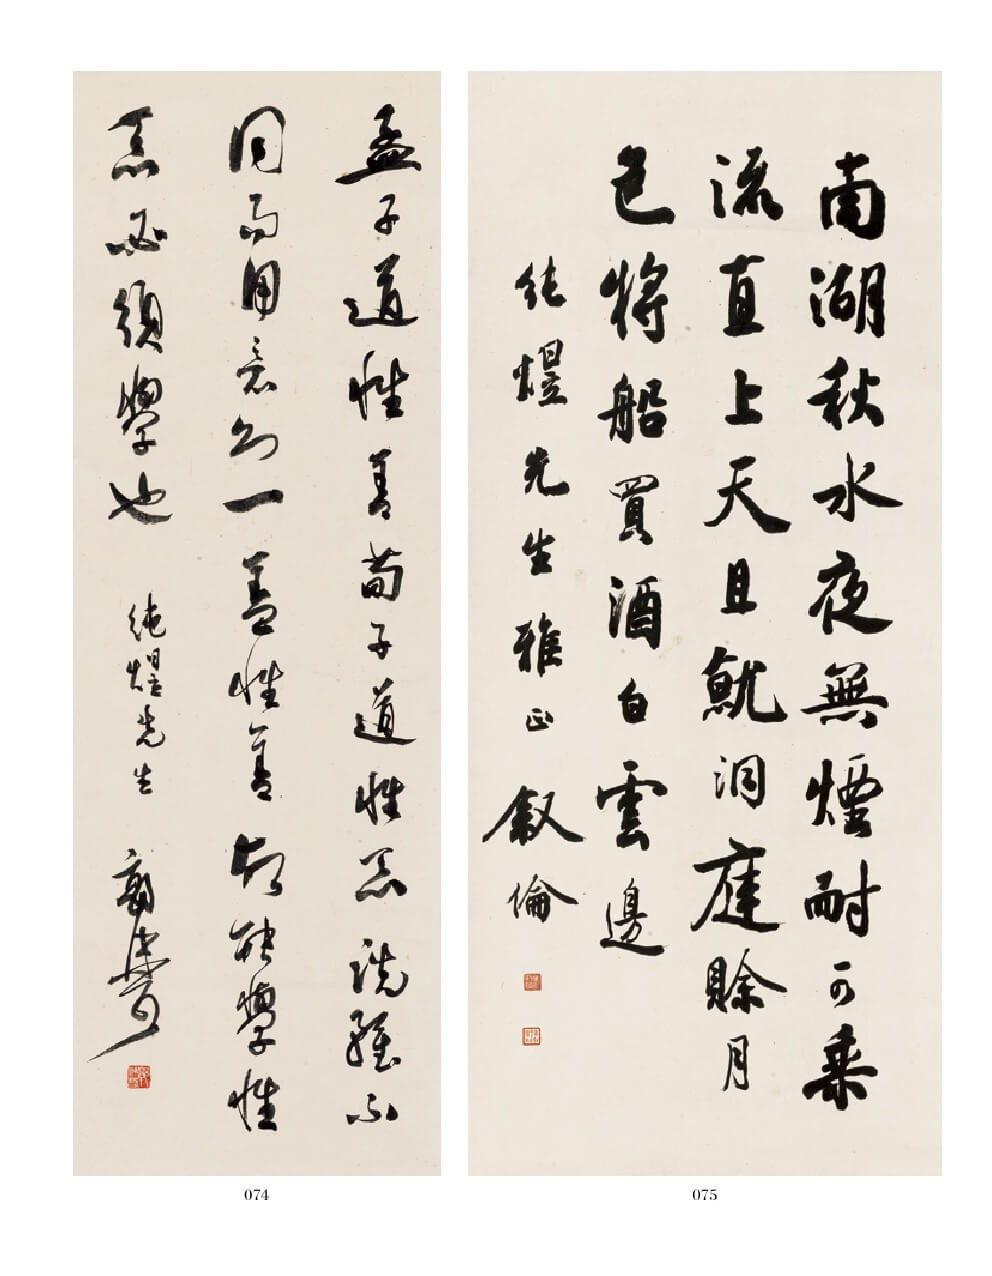 孟子道性善荀子道性惡說雖不
同而用意則一蓋性善故能學性
惡必須學也
純熤先生
南湖秋水夜無煙耐可乘
流直上天且就洞庭賒月
色將船買酒白雲邊
純熤先生雅正 叙倫
074
075